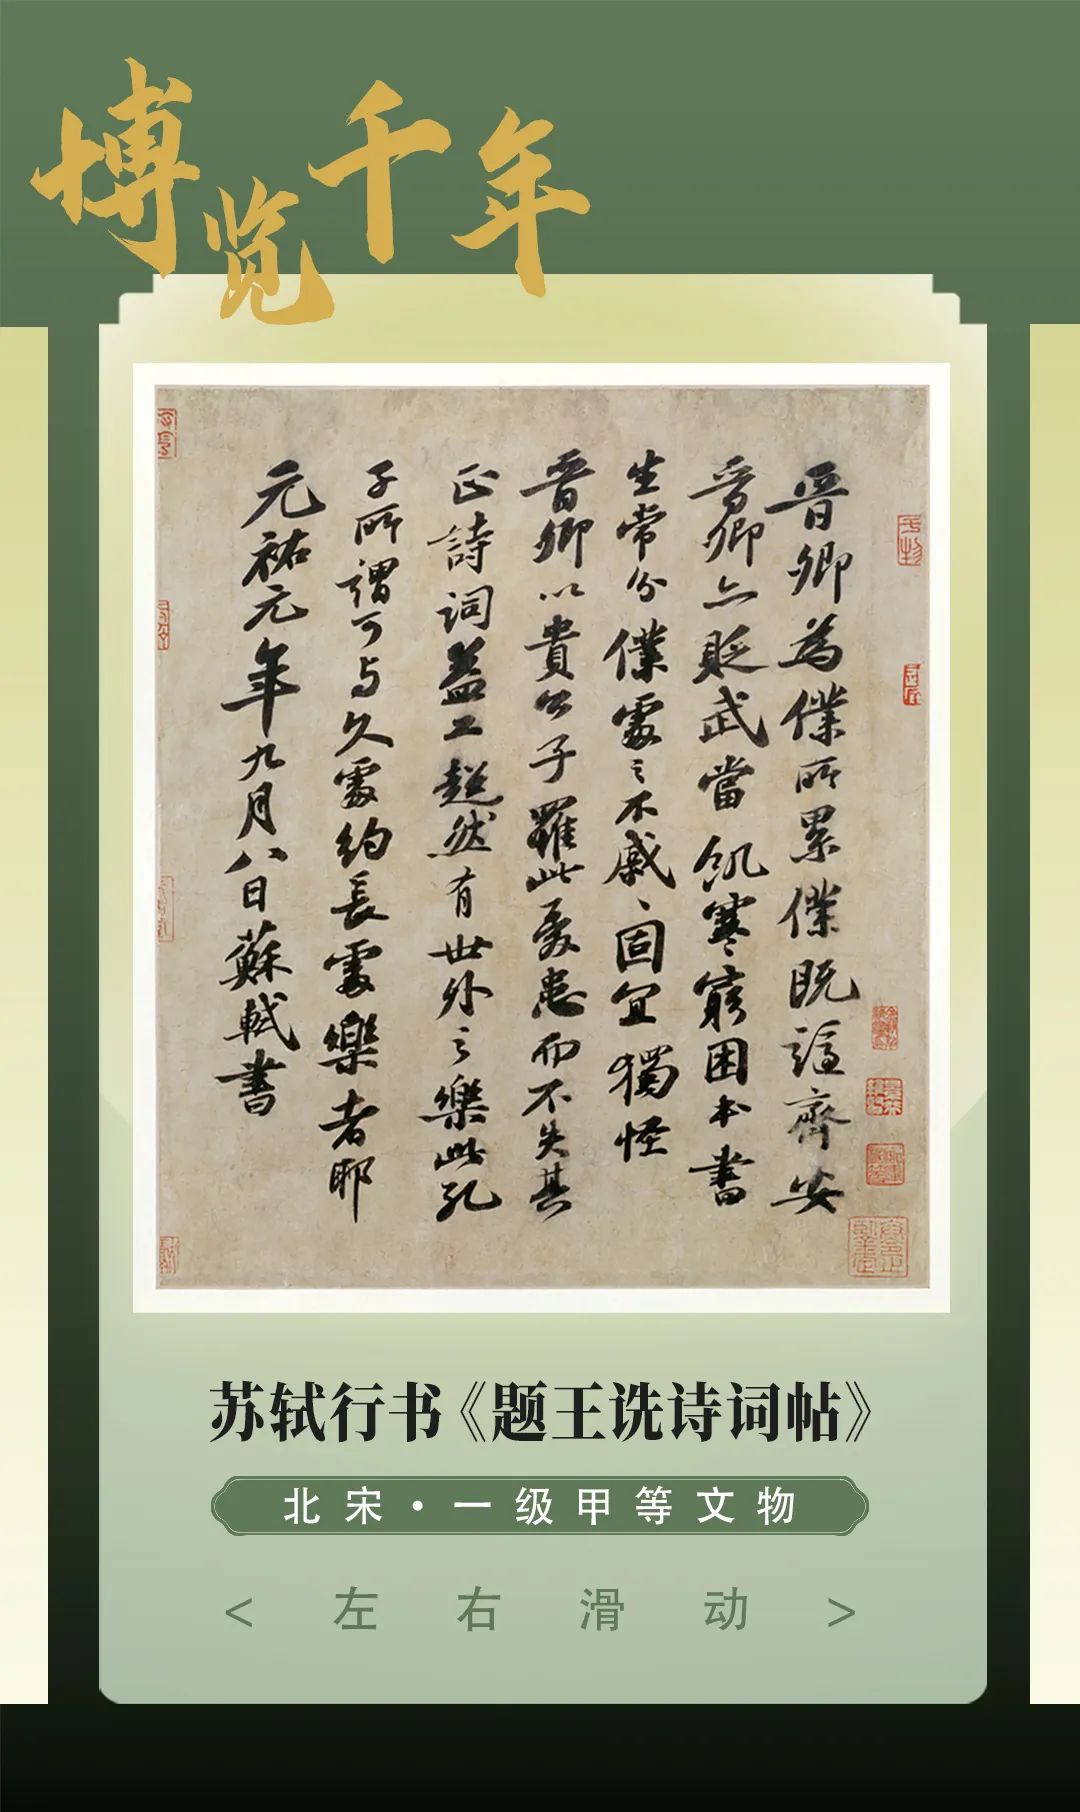 博览千年
晉卿為僕所累僕既謫齊安
晉卿亦貶武當飢寒窮困本書
生常分僕處之不戚、固宜獨怪
晉卿以貴公子罹此憂患而不失其
正詩詞益工超然有世外之樂此孔
子所謂可与久處約長處樂者耶
元祐元年九月八日蘇軾書
苏轼行书《题王诜诗词帖》
北宋·一级甲等文物
< 左右滑动 >